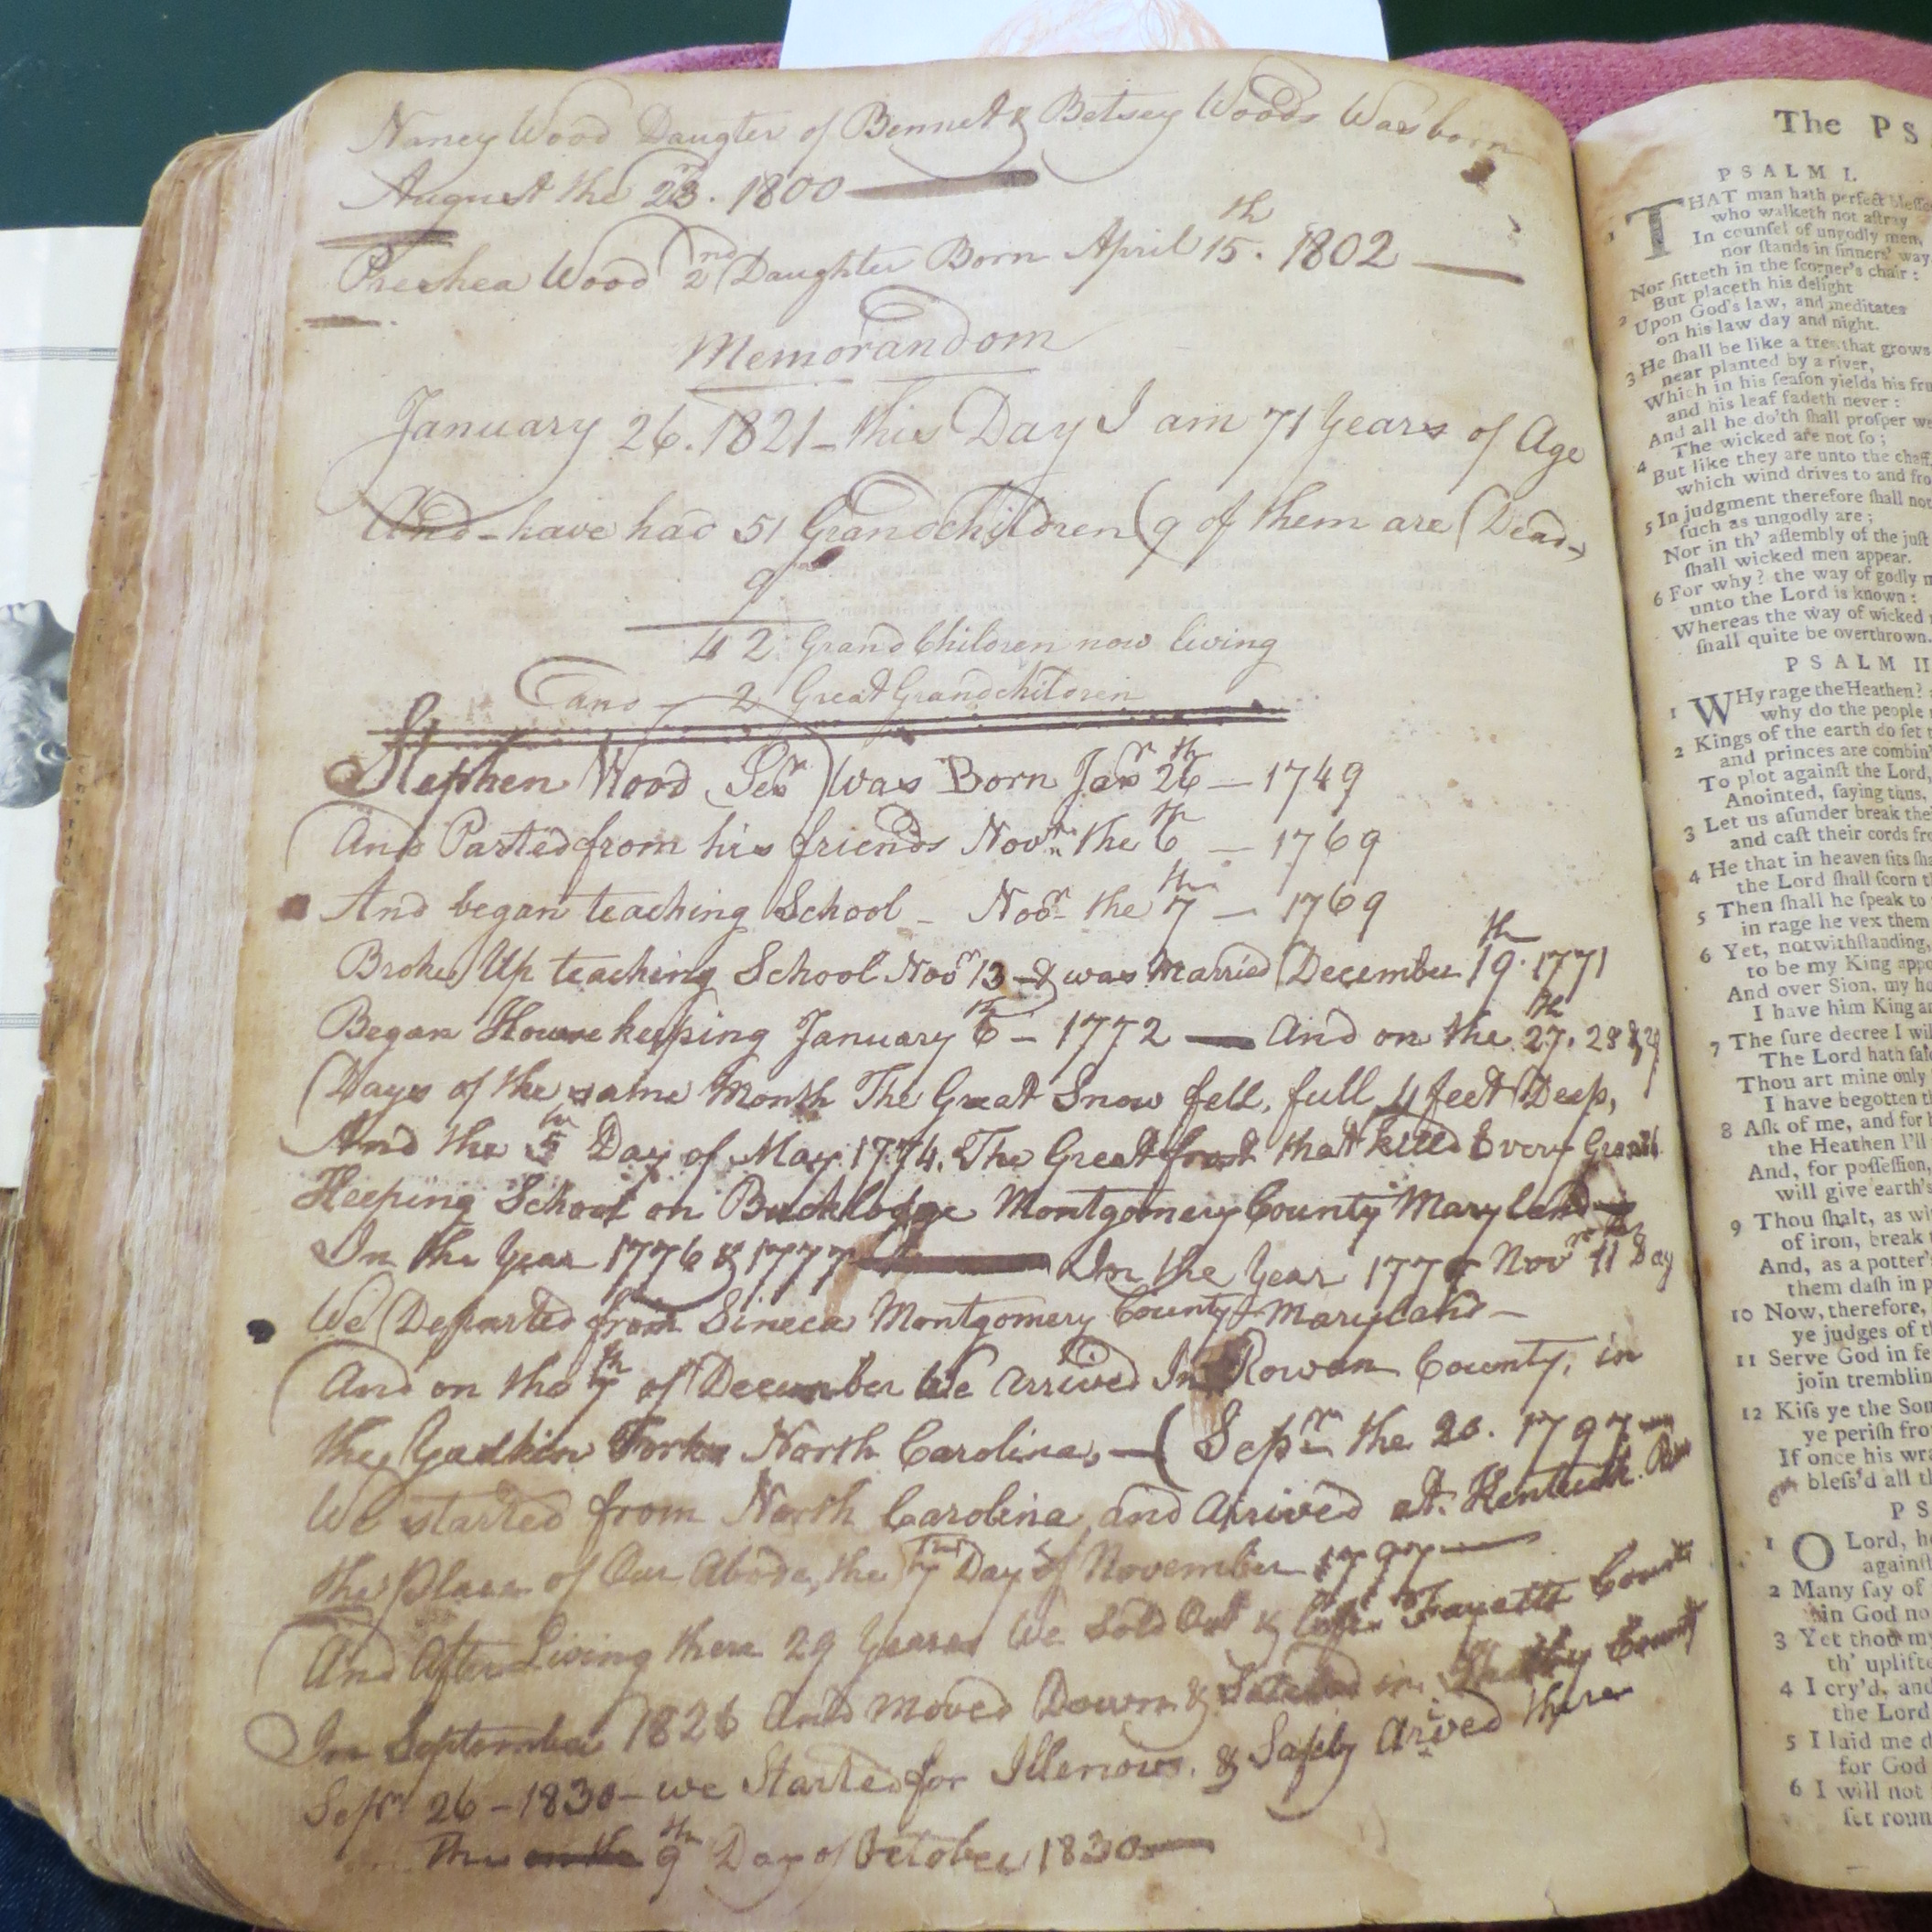 Nancy Wood Daugter of Bennet & Betsey Woods Was born
August the 23. 1800
Preshea Wood 2nd Daughter Born April 15th. 1802
Memorandom
January 26. 1821 - this Day I am 71 Years of Age
And - have had 51 Grandchildren (9 of them are Dead
9
42 Grand Children now living
and - 2 Great Grandchildren
Stephen Wood Senr was Born Janr 26th - 1749
And Parted from his friends Novr the 6th - 1769
And began teaching School - Novr the 7th - 1769
Broke Up teaching School Novr 13 - & was Married December 19th. 1771
Began House keeping January 6th - 1772 - And on the 27th. 28 & 29
Days of the same Month The Great Snow fell, full 4 feet Deep,
And the 5th Day of May 1774. The Great frost that killed Every
Keeping School on Bucklodge Montgomery County Maryland
In the Year 1776 & 1777 In the Year Novr 11 Day
We Departed from Sineca Montgomery County Maryland -
And on the 7th of December We Arrived In Rowan County, in
the Yadkin Forks North Carolina, - (Sepr the 20. 1797
We started from North Carolina, and Arrived at Kentuck
the Place of Our Abode, the 7th Day of November 1797
And After Living there 29 Years We Sold Out & Left Fayette
In September 1826 And Moved Down & in County
Sepr 26 - 1830 - we Started for Illenois. & Safely Arived there
9th Day of October 1830
The PS
PSALM I.
1 THAT man hath perfect
who walketh not astray
In counsel of ungodly men,
nor stands in sinners' way
Nor sitteth in the scorner's chair:
2 But placeth his delight
Upon God's law, and meditates
on his law day and night.
3 He shall be like a tree that grows
near planted by a river,
Which in his season yields his
and his leaf fadeth never:
And all he do'th shall prosper
4 The wicked are not so;
But like they are unto the chaff
which wind drives to and
5 In judgment therefore shall
such as ungodly are;
Nor in th' assembly of the just
shall wicked men appear.
6 For why? the way of godly
unto the Lord is known:
Whereas the way of wicked
shall quite be overthrown.
PSALM II
1 WHy rage the Heathen?
why do the people
2 Kings of the earth do set
and princes are combin'
To plot against the Lord,
Anointed, saying thus,
3 Let us asunder break
and cast their cords
4 He that in heaven sits
the Lord shall scorn
5 Then shall he speak to
in rage he vex them
6 Yet, notwithstanding,
to be my King
And over Sion, my
I have him King
7 The sure decree I
The Lord hath
Thou art mine only
I have begotten
8 Ask of me, and for
the Heathen I'll
And, for possession,
will give earth's
9 Thou shalt, as
of iron, break
And, as a potter's
them dash in
10 Now, therefore,
ye judges of
11 Serve God in
join
12 Kiss ye the Son
ye perish
If once his
bless'd all
1 O Lord,
2 Many say of
in God
3 Yet thou
th'
4 I cry'd, and
the Lord
5 I laid me
for God
6 I will not
set